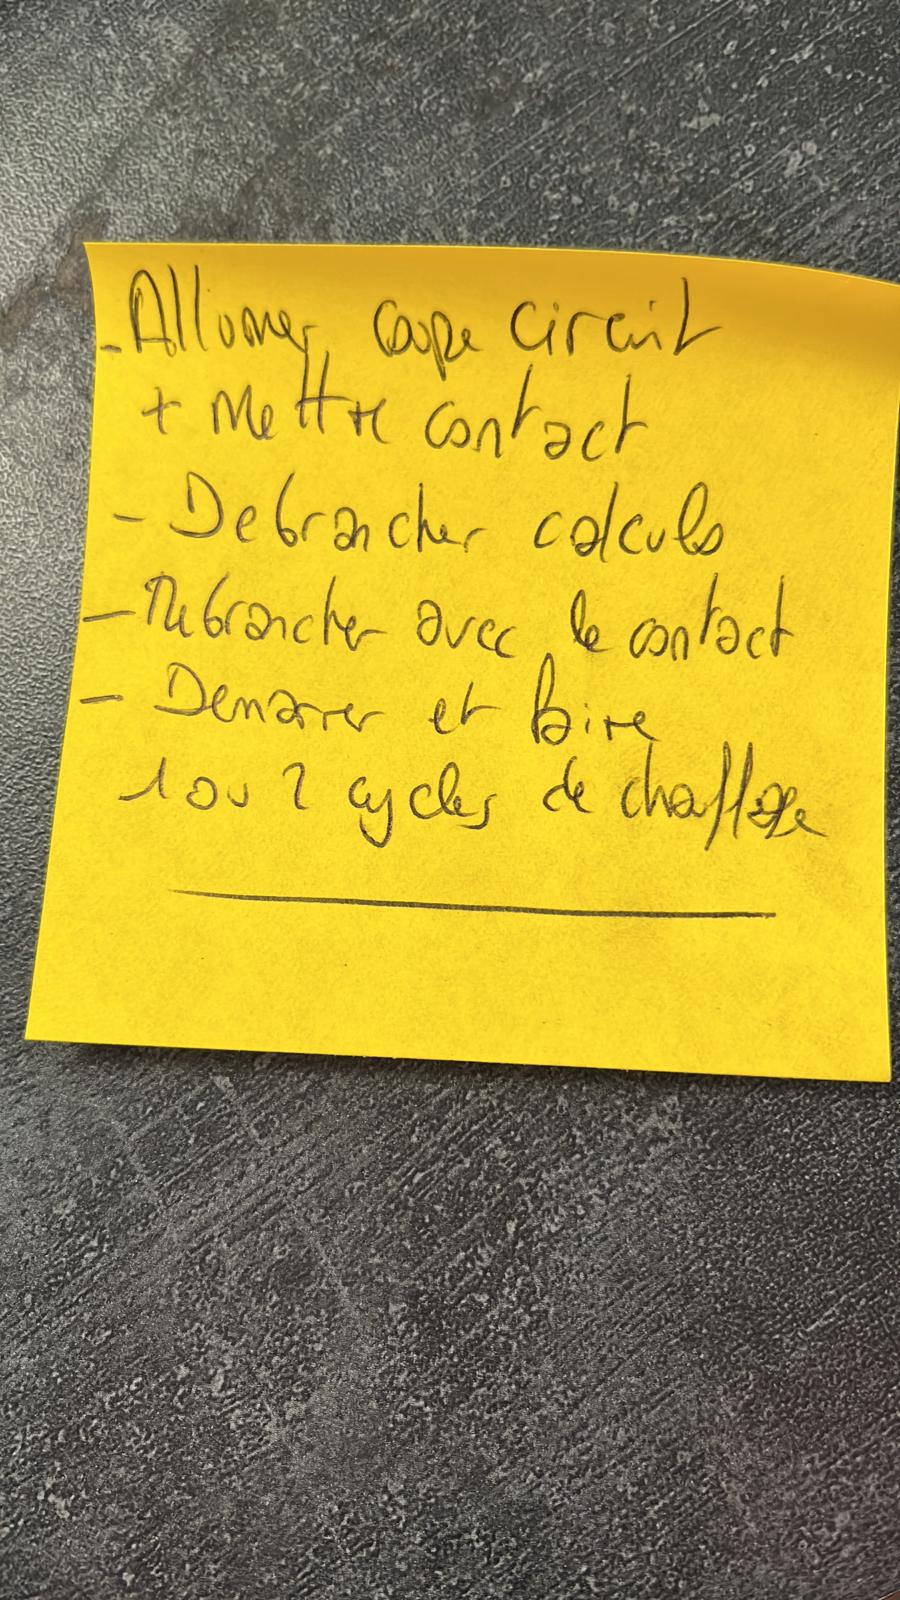 - Allumer coupe circuit
+ Mettre contact
- Debrancher calculo
- Rebrancher avec le contact
- Demarrer et faire
1 ou 2 cycles de chauffage